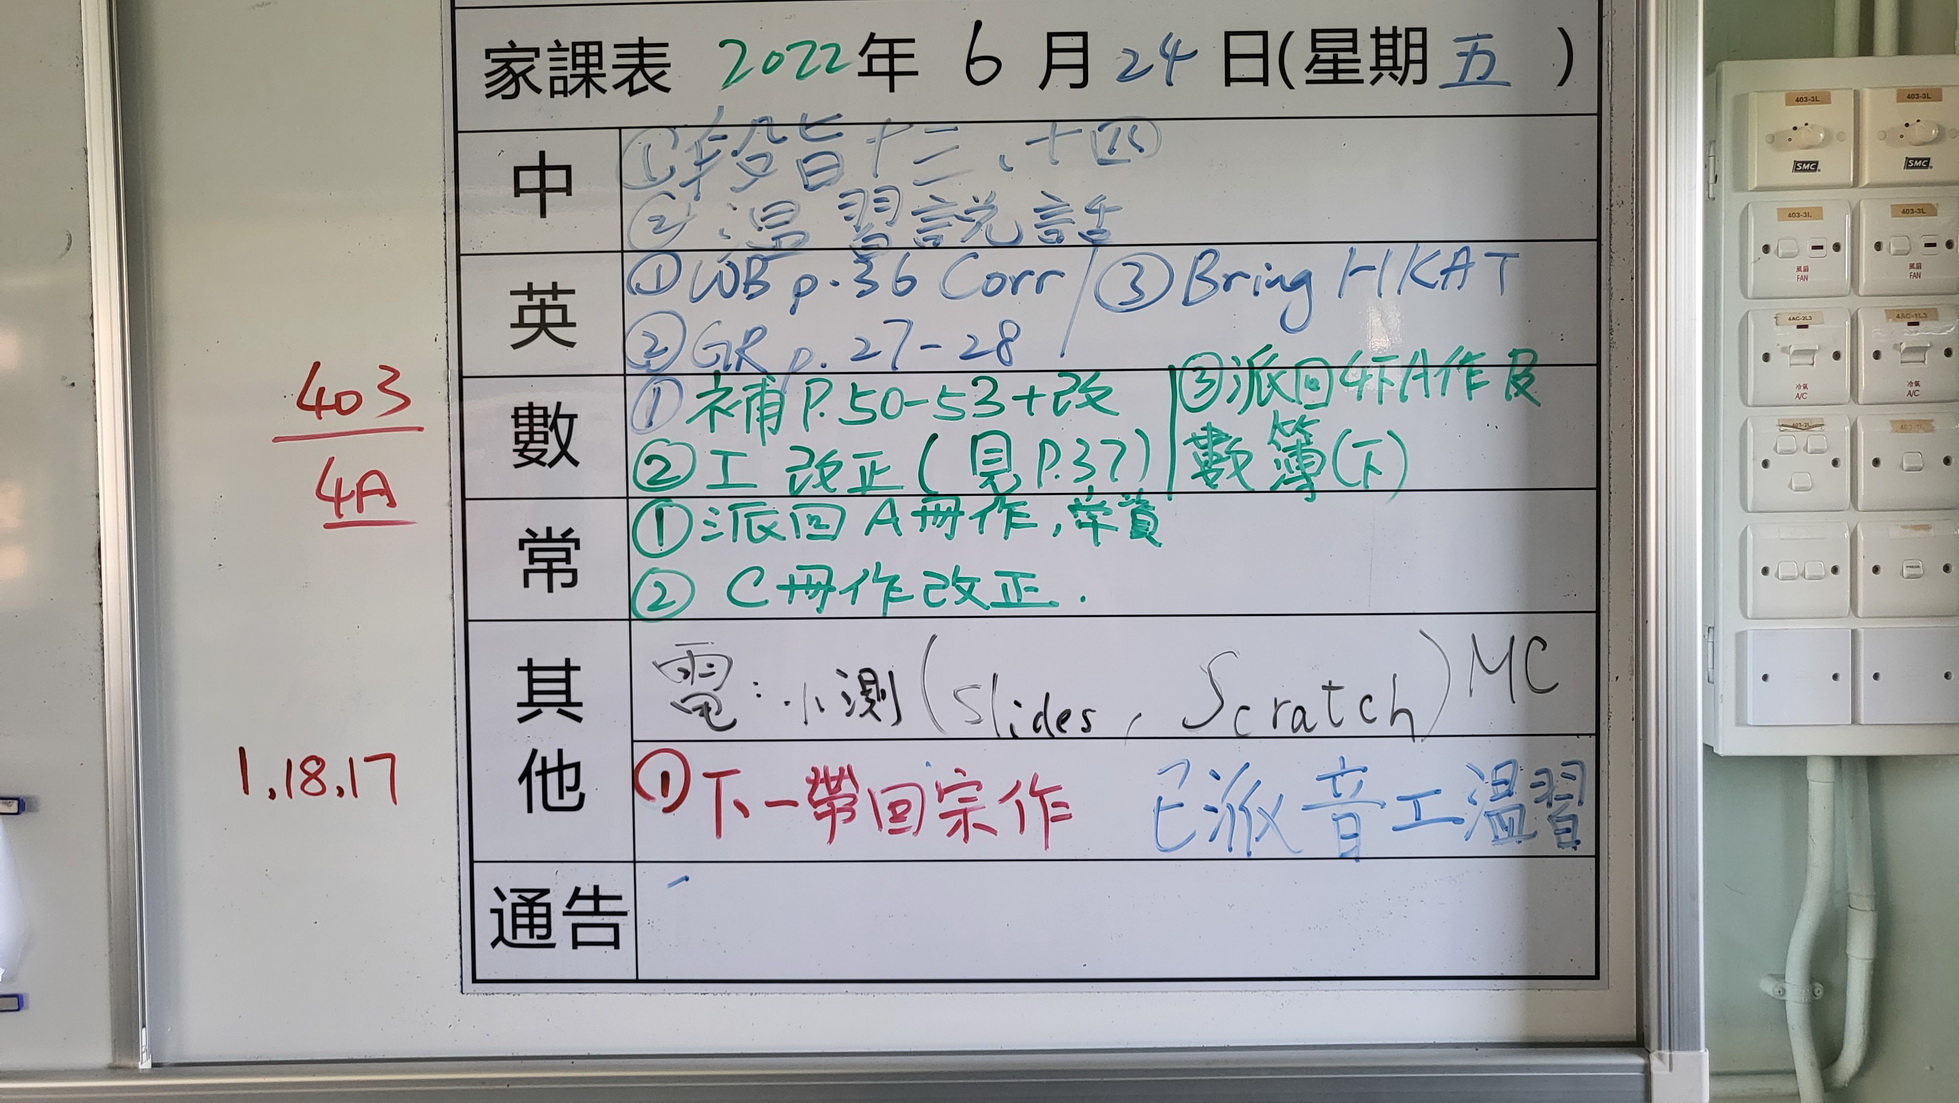 家課表 2022年 6 月 24 日(星期 五 )
中
①段旨十三、十四
②溫習說話
英
①WB p.36 Corr / ③Bring HKAT
②GR p. 27-28
數
①補P.50-53+改 | ③派回4下A作及
②工 改正(見P.37) | 數簿(下)
常
①派回A冊作,
②C冊作改正.
其他
電:小測(Slides, Scratch) MC
①下一帶回宗作 已派音工溫習
通告
403
4A
1.18.17
403-3L
403-3L
SMC
SMC
403-3L
403-3L
風扇
FAN
風扇
FAN
冷氣
A/C
冷氣
A/C